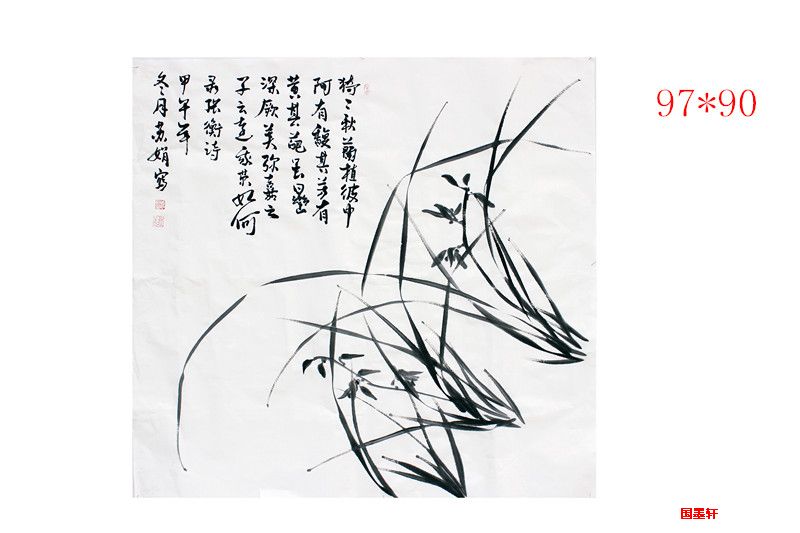 猗〻秋蘭植彼中
阿有馥其芳有
黄其葩虽曰幽
深厥美弥嘉之
子云远我劳如何
录张衡诗
甲午年
冬月娟写
97*90
国墨轩